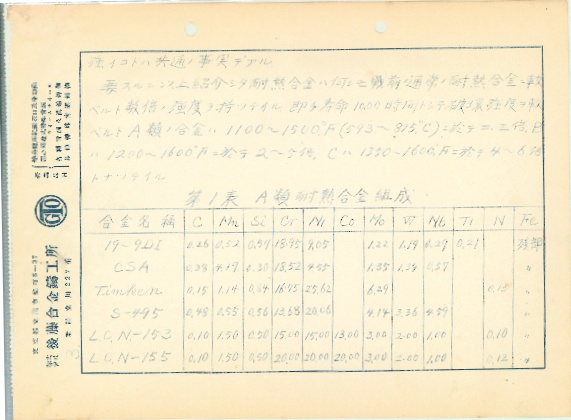 強イコトハ共通ノ事実デアル
要スルニ以上紹介シタ耐熱合金ハ何レモ戦前ノ通常ノ耐熱合金ニ較
ベルト数倍ノ強度ヲ持ツテイル 即チ寿命1000時間トシテ破壊強度ヲ較
ベルト A類ノ合金ハ 1100~1500°F(593~815°C)ニ於テ 二、三倍, B
ハ 1200~1600°Fニ於テ 2~5倍, Cハ 1250~1600°Fニ於テ 4~6倍
トナツテイル
第1表 A類耐熱合金組成
合金名稱 C Mn Si Cr Ni Co Mo W Nb Ti N Fe
19-9DL 0.26 0.52 0.59 18.95 9.05 1.22 1.19 0.29 0.21 残部
CSA 0.38 4.19 0.50 18.52 4.55 1.35 1.34 0.57 〃
Timken 0.15 1.14 0.84 16.75 25.62 6.29 0.15 〃
S-495 0.45 0.55 0.56 13.68 20.06 4.14 3.36 4.59 〃
L.C.N-153 0.10 1.50 0.50 15.00 15.00 13.00 3.00 2.00 1.00 0.10 〃
L.C.N-155 0.10 1.50 0.50 20.00 20.00 20.00 3.00 2.00 1.00 0.12 〃
GTO
後藤合金鑄工所